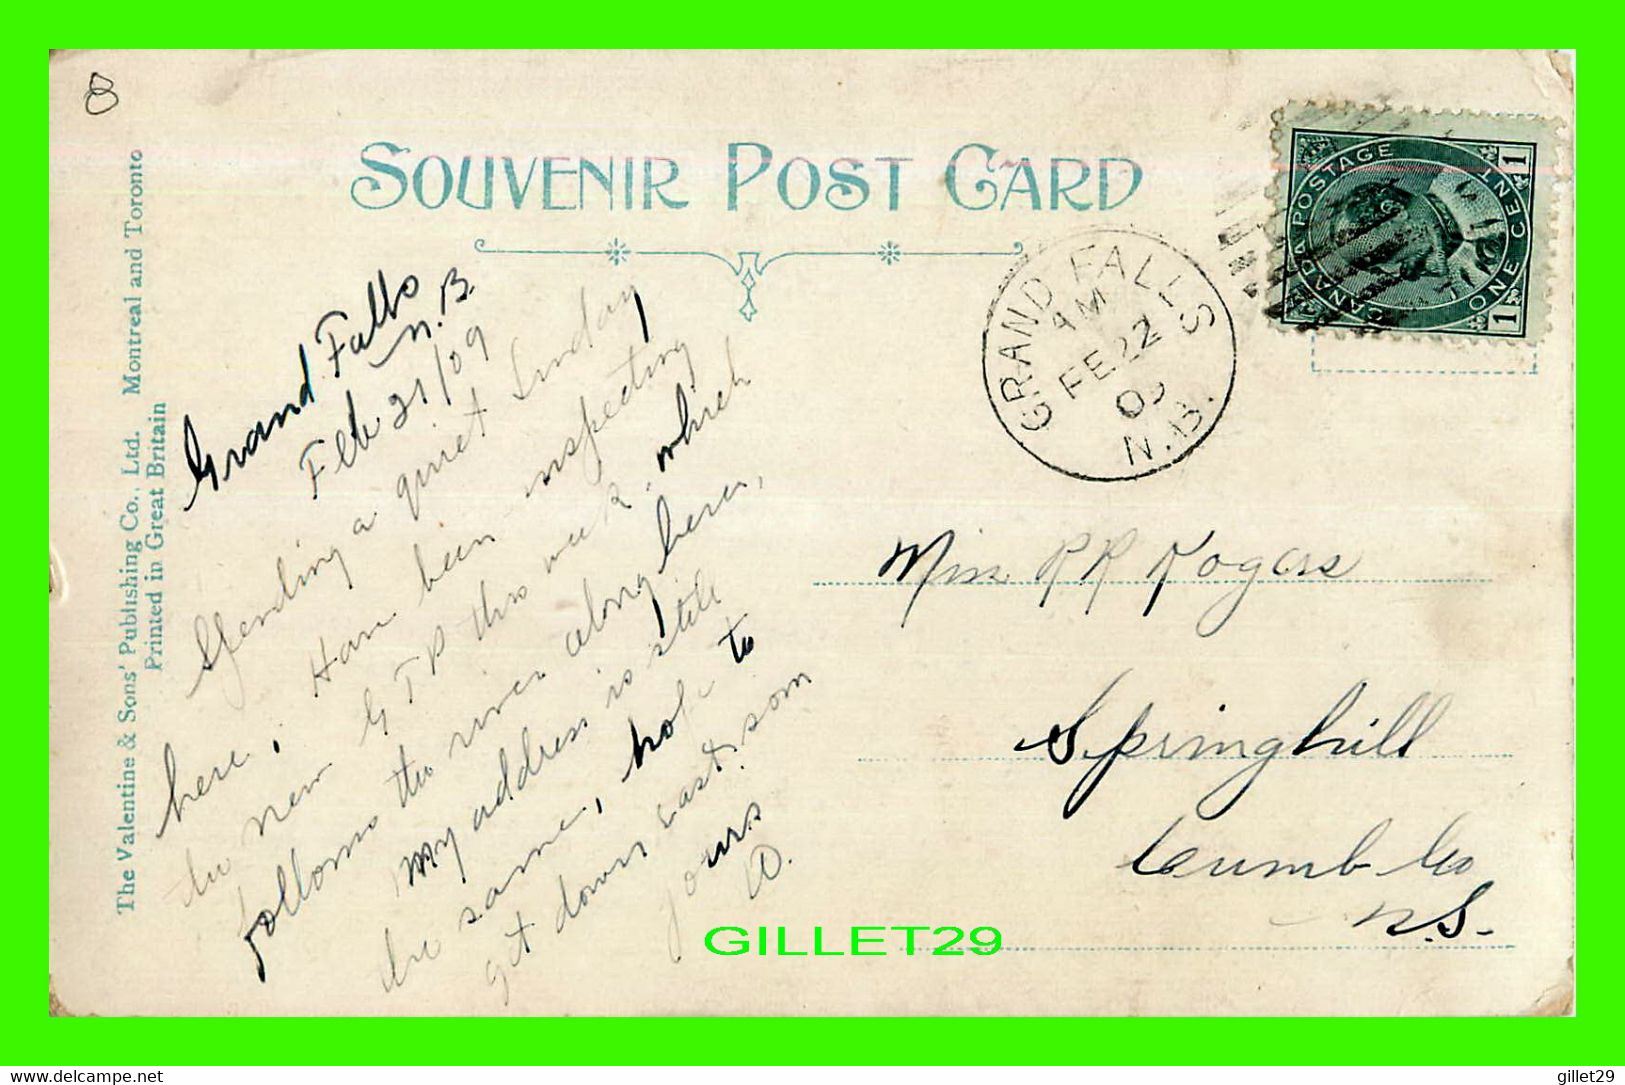 8
SOUVENIR POST CARD
The Valentine & Sons' Publishing Co., Ltd. Montreal and Toronto
Printed in Great Britain
Grand Falls
N.B.
Feb 21/09
Spending a quiet Sunday
here, Have been inspecting
the new GTP this week, which
follows the river along here,
My address is still
the same, hope to
get down east som
yours
GRAND FALLS
AM
FE 22
09
N.B.
CANADA POSTAGE
ONE CENT
1 1
Miss RR Rogers
Springhill
Cumb Co
N.S.
GILLET29
Image sur akpool.de
gillet29